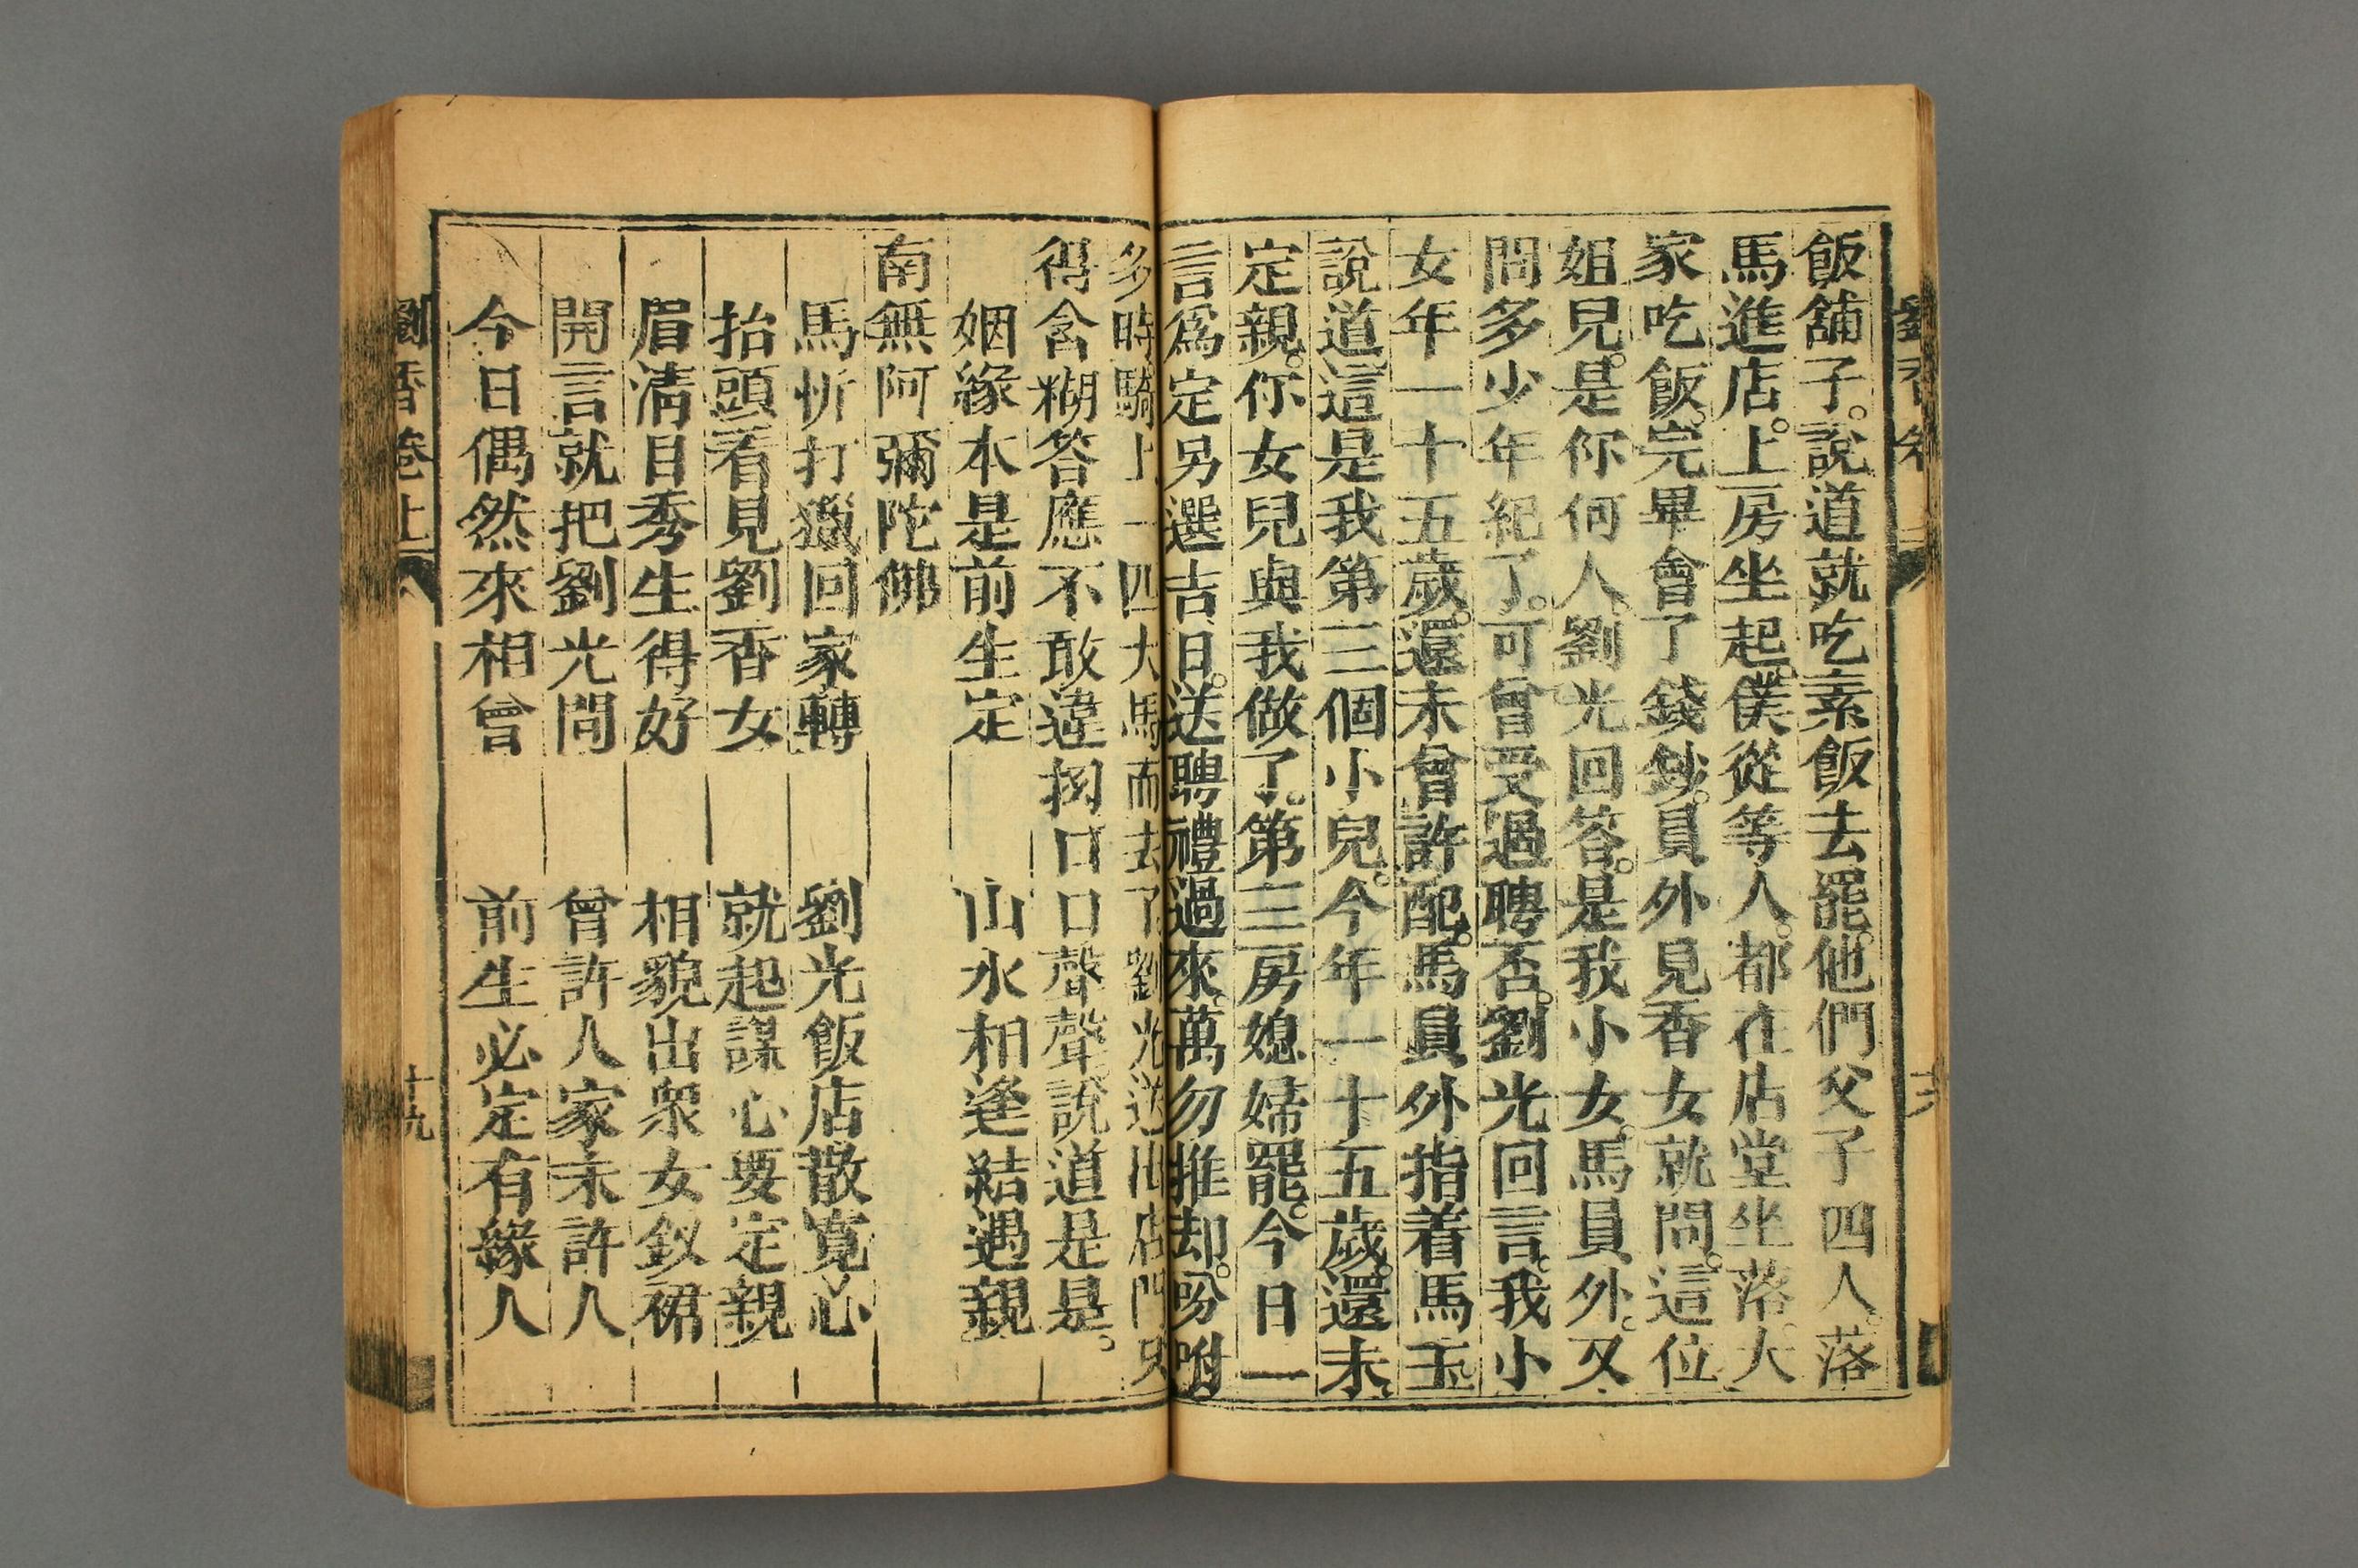 飯舖子。說道就吃素飯去罷。他們父子四人。落
馬進店。上房坐起。僕從等人。都在店堂坐落。大
家吃飯。完畢會了錢鈔。員外見香女就問。這位
姐兒。是你何人。劉光回答。是我小女。馬員外。又
問多少年紀了。可曾受過聘否。劉光回言。我小
女年一十五歲。還未曾許配。馬員外指着馬玉
說道這是我第三個小兒。今年一十五歲。還未
定親。你女兒與我做了。第三房媳婦罷。今日一
言爲定另選吉日。送聘禮過來。萬勿推却。吩咐
多時騎上一四大馬而去了劉光送出店門只
得含糊答應不敢違拗口口聲聲說道是是。
姻緣本是前生定 山水相逢結遇親
南無阿彌陀佛
馬忻打獵回家轉 劉光飯店散寬心
抬頭看見劉香女 就起謀心要定親
眉清目秀生得好 相貌出衆女釵裙
開言就把劉光問 曾許人家未許人
今日偶然來相會 前生必定有緣人
劉香卷上
十九